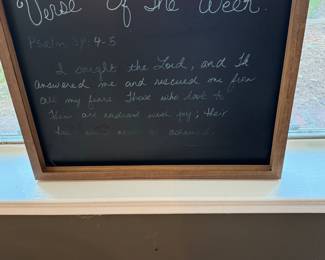 Verse Of The Week:
Psalm 34:4-5
I sought the Lord, and He
answered me and rescued me from
all my fears Those who look to
Him are radiant with joy; their